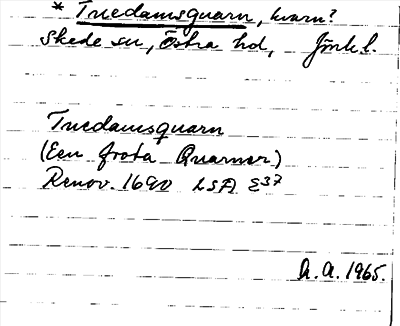 * Tuedamsquarn, kvarn?
Skede sn, Östra hd, Jönk l.
Tuedamsquarn
(Een froda Quarner)
Renov. 1690 LSA E37
A. A. 1965.